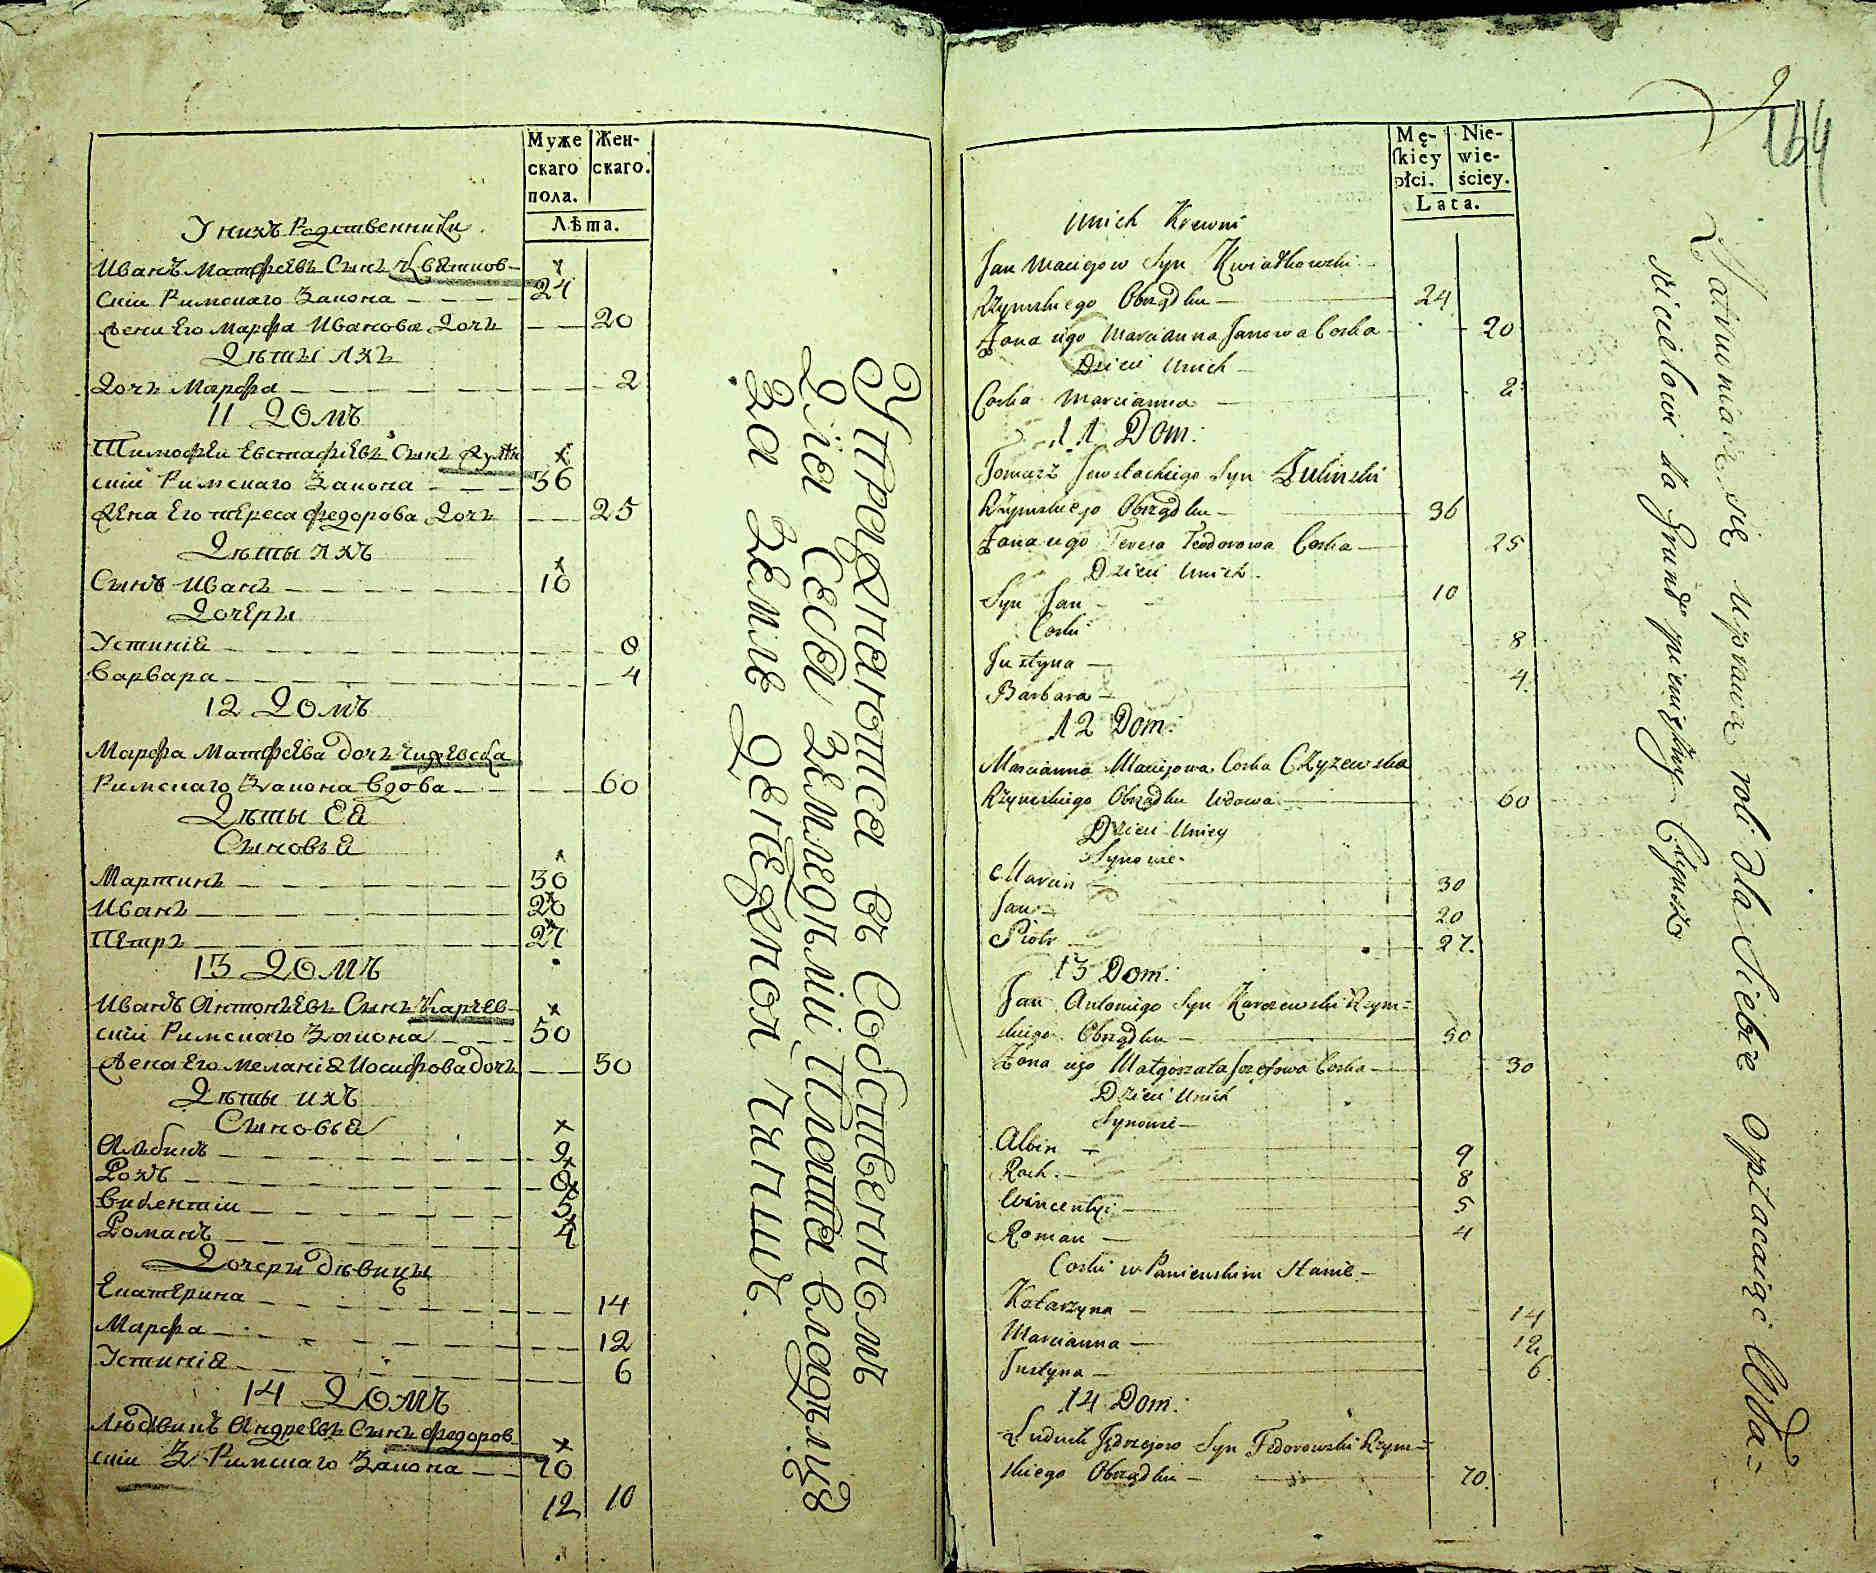 Муже
скаго
пола.
Жен-
скаго.
Лѣта.
У нихъ Родственники
Иванъ Матфеевъ Сынъ Квятков-
скіи Римскаго Закона 24
Жена Его Марфа Иванова Дочь 20
Дѣты ихъ
Дочь Марфа 2
11 Домъ
Тимофеи Евстафіевъ Сынъ
скіи Римскаго Закона 36
Жена Его Тереса Федорова Дочь 25
Дѣты ихъ
Сынъ Иванъ 10
Дочеры
Устиніа 8
Варвара 4
12 Домъ
Марфа Матфеева дочь Чижевска
Римскаго Закона Вдова 60
Дѣты Еа
Сыновьа
Мартинъ 30
Иванъ 20
Петръ 27
13 Домъ
Иванъ Антоньевъ Сынъ Карчев-
скіи Римскаго Закона 50
Жена Его Меланіа Иосифова дочь 30
Дѣты ихъ
Сыновьа
Альбинъ 9
Рохъ 8
Викентіи 5
Романъ 4
Дочеры дѣвицы
Екатерина 14
Марфа 12
Устиніа 6
14 Домъ
Людвикъ Андреевъ Сынъ Федоров-
скіи Римскаго Закона 70
12 10
Упражнаютса въ Собственномъ
Дла Себа Земледѣліи Плата Владѣлцу
За Землю Денежнои Чиншъ.
Mę-
skiey
płci.
Nie-
wie-
ściey.
Lata.
164
Unich Krewni
Jan Maciejow Syn Kwiatkowski
Rzymskiego Obrządku 24
Zona iego Marcianna Janowa Corka 20
Dzieci Unich
Corka Marcianna 2
11 Dom:
Tomasz Syn Zulinski
Rzymskiego Obrządku 36
Zona iego Teresa Teodorowa Corka 25
Dzieci Unich
Syn Jan 10
Corki
Justyna 8
Barbara 4
12 Dom:
Marcianna Maciejowa Corka Czyzewska
Rzymskiego Obrządku Wdowa 60
Dzieci Uniey
Synowie
Marcin 30
Jan 20
Piotr 27
13 Dom:
Jan Antoniego Syn Karczewski Rzym=
skiego Obrządku 50
Zona iego Małgorzata Jozefowa Corka 30
Dzieci Unich
Synowie
Albin 9
Roch 8
Wincenty 5
Roman 4
Corki w Panienskim Stanie
Katarzyna 14
Marcianna 12
Justyna 6
14 Dom:
Ludwik Jędrzejow Syn Fedorowski Rzym=
skiego Obrządku 70
Zatrudniaią się uprawą roli dla Siebie Opłacaiąc Wła=
scicielowi za Grunt pieniężny Czynsz